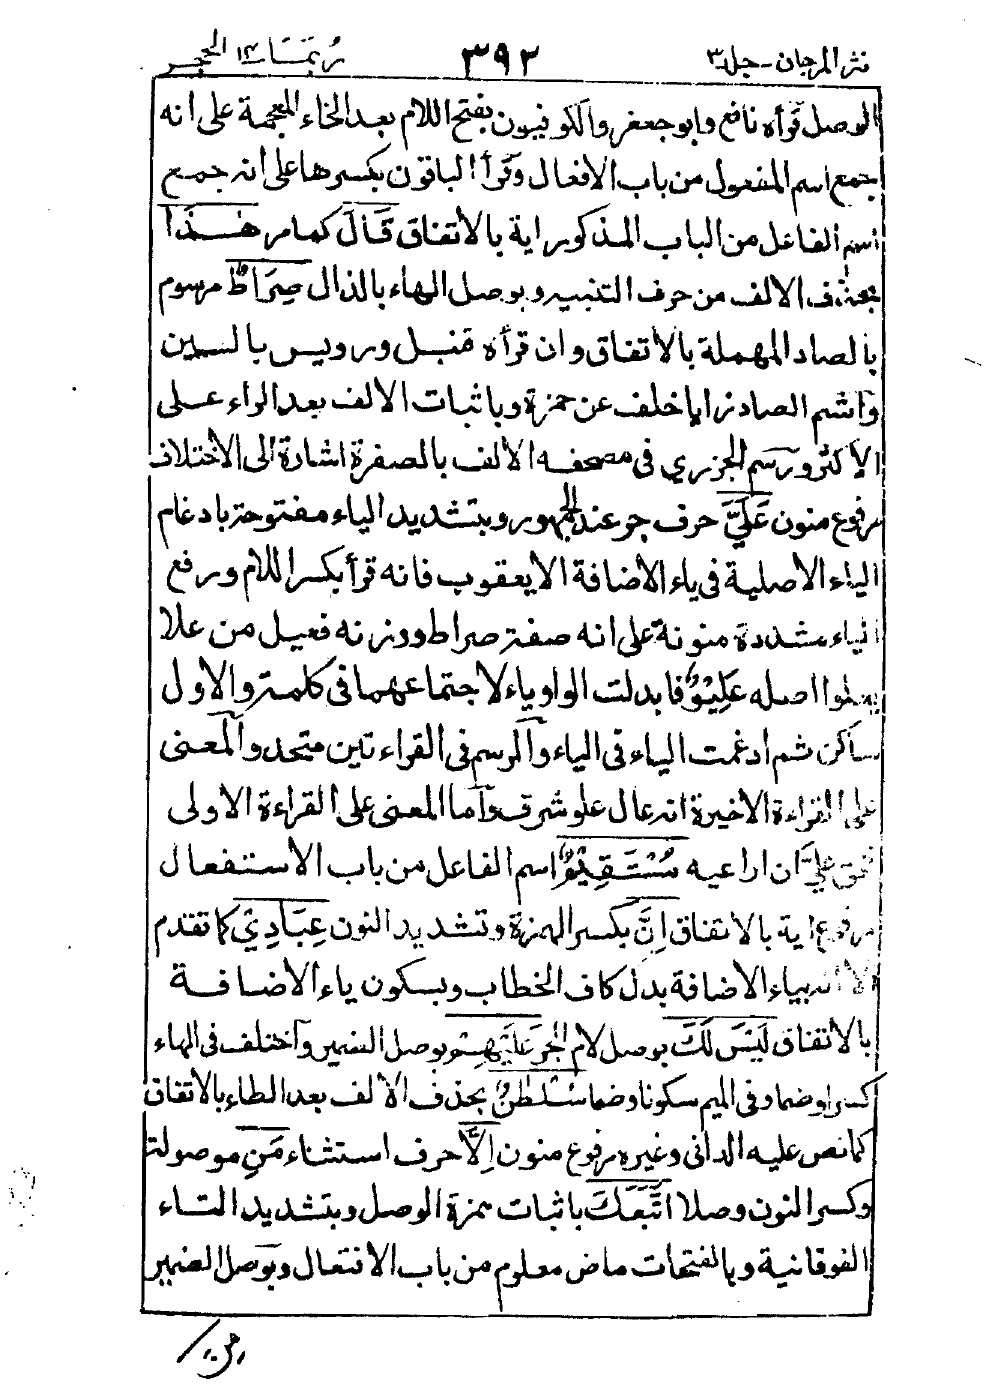 نثر المرجان - جلد ٣ ٣٩٢ ربما ١٤ الحجر
الوصل قرأه نافع وابو جعفر والكوفيون بفتح اللام بعد الخاء المعجمة على انه
جمع اسم المفعول من باب الافعال وقرأ الباقون بكسرها على انه جمع
اسم الفاعل من الباب المذكور اية بالاتفاق قَالَ كما مر هٰذَا
بحذف الالف من حرف التنبيه وبوصل الهاء بالذال صِرَاطٌ مرسوم
بالصاد المهملة بالاتفاق وان قرأه قنبل ورويس بالسين
واشم الصاد زايا خلف عن حمزة وباثبات الالف بعد الراء على
الاكثر ورسم الجزري في مصحفه الالف بالصفرة اشارة الى الاختلاف
مرفوع منون عَلَيَّ حرف جر عند الجمهور وبتشديد الياء مفتوحة بادغام
الياء الاصلية في ياء الاضافة الا يعقوب فانه قرأ بكسر اللام ورفع
الياء مشددة منونة على انه صفة صراط ووزنه فعيل من علا
يعلوا اصله عَلِيْوٌ فابدلت الواو ياء لاجتماعهما في كلمة والاول
ساكن ثم ادغمت الياء في الياء والرسم في القراءتين متحد والمعنى
على القراءة الاخيرة انه عال علو شرف واما المعنى على القراءة الاولى
حق عليّ ان اراعيه مُسْتَقِيْمٌ اسم الفاعل من باب الاستفعال
مرفوع اية بالاتفاق اِنَّ بكسر الهمزة وتشديد النون عِبَادِيْ كما تقدم
الا انه بياء الاضافة بدل كاف الخطاب وبسكون ياء الاضافة
بالاتفاق لَيْسَ لَكَ بوصل لام الجر عَلَيْهِمْ بوصل الضمير واختلف في الهاء
كسرا وضما وفي الميم سكونا وضما سُلْطٰنٌ بحذف الالف بعد الطاء بالاتفاق
كما نص عليه الداني وغيره مرفوع منون اِلَّا حرف استثناء مَنِ موصولة
وكسر النون وصلا اتَّبَعَكَ باثبات همزة الوصل وبتشديد التاء
الفوقانية وبالفتحات ماض معلوم من باب الافتعال وبوصل الضمير